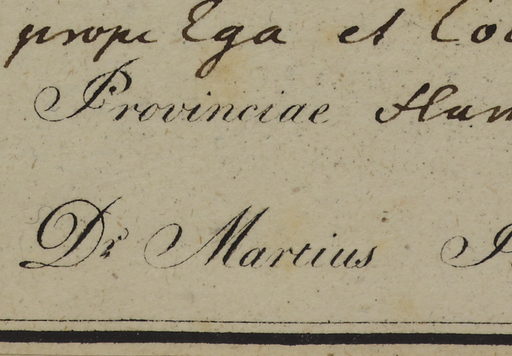 prope Ega et
Provinciae
Dr. Martius